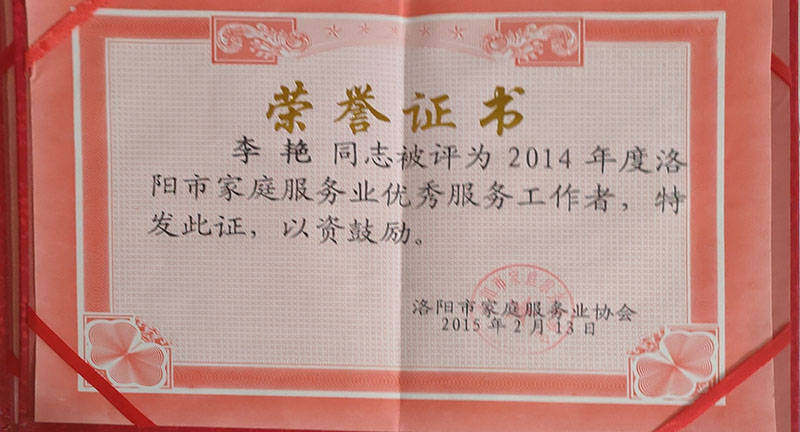 荣誉证书
李艳 同志被评为 2014 年度洛
阳市家庭服务业优秀服务工作者，特
发此证，以资鼓励。
洛阳市家庭服务业协会
2015 年 2 月 13 日